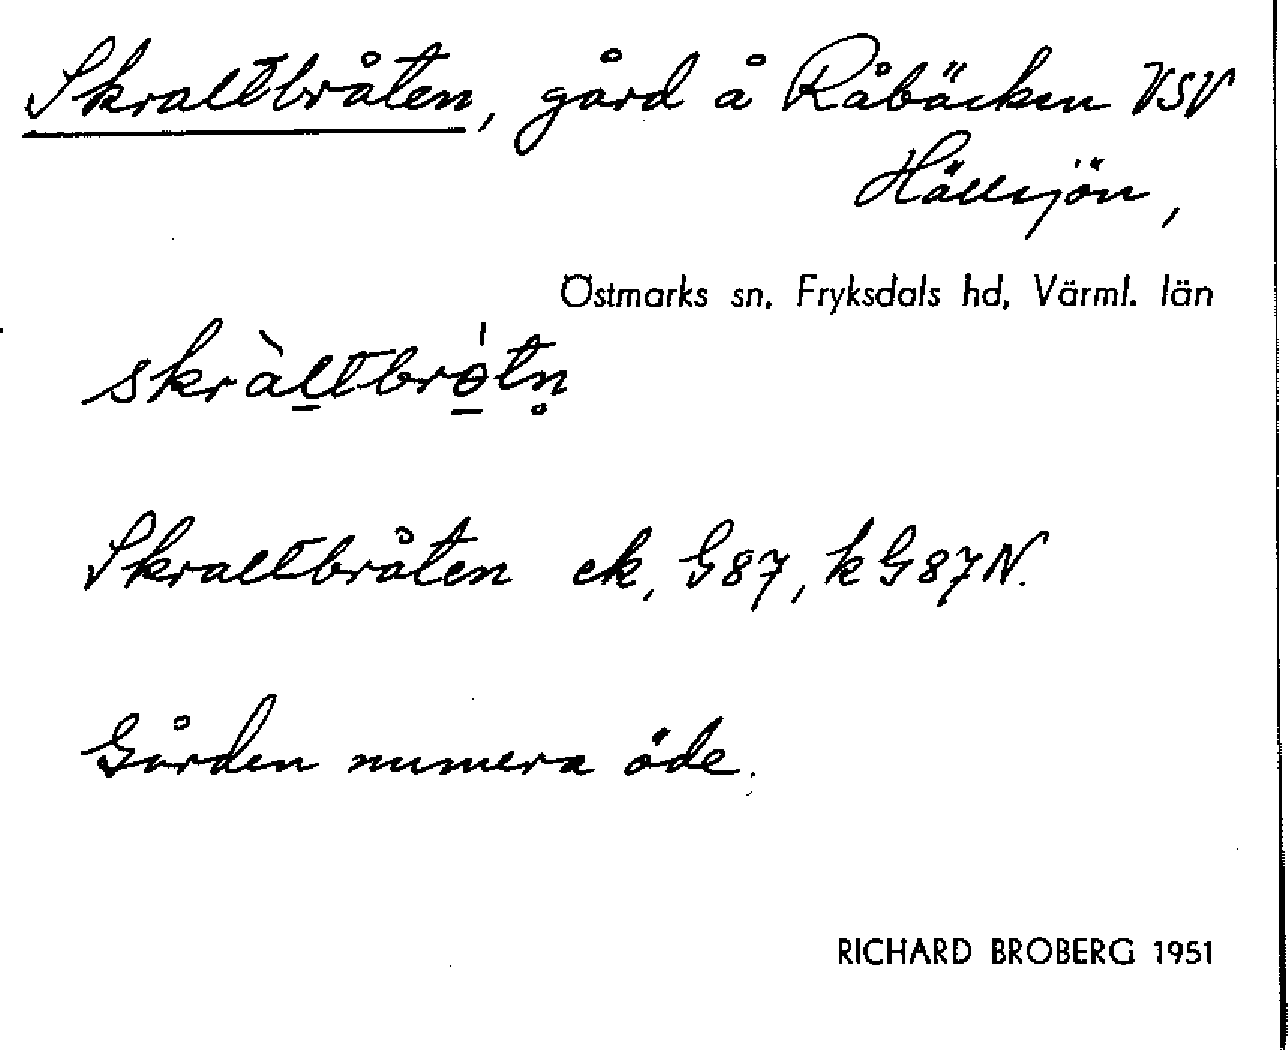 Skralltbråten, gård å Råbäcken VSV
Hällsjön,
Östmarks sn, Fryksdals hd, Värml. län
skràl̠tbró̠tn̥
Skralltbråten ek, G87, k G87N.
Gården numera öde.
RICHARD BROBERG 1951